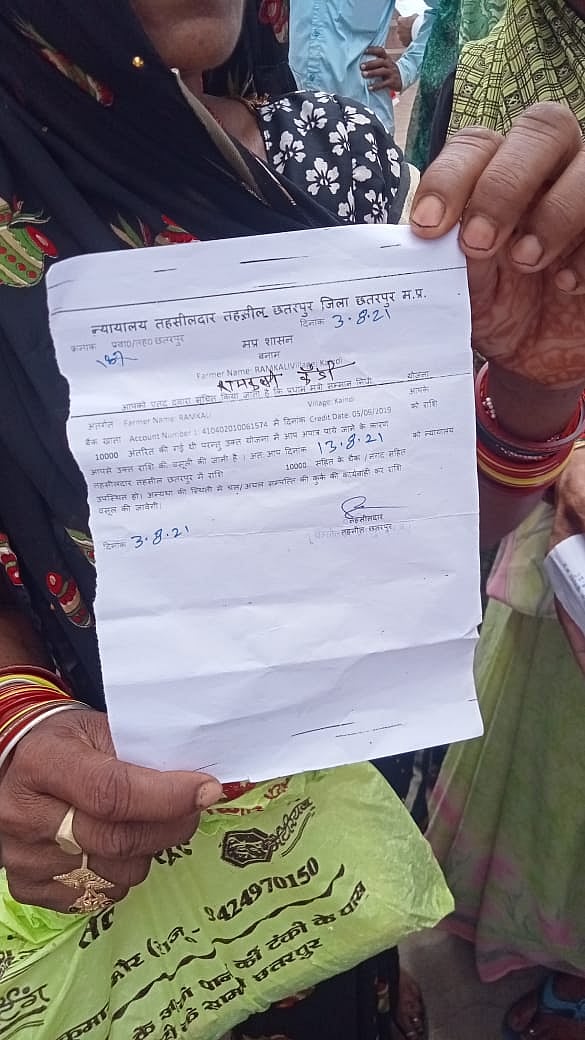 न्यायालय तहसीलदार तहसील छतरपुर जिला छतरपुर म.प्र.
क्रमांक प्रवा0/तह0 छतरपुर
दिनांक 3.8.21
मप्र शासन
बनाम
Farmer Name: RAMKALI Village: Kaindi
रामकली कैंडी
आपको एतद द्वारा सूचित किया जाता है कि प्रधान मंत्री सम्मान निधी योजना
अंतर्गत Farmer Name: RAMKALI Village: Kaindi आपके
बैंक खाता Account Number : 410402010061574 में दिनांक Credit Date: 05/09/2019 को राशि
10000 अंतरित की गई थी परन्तु उक्त योजना में आप अपात्र पाये जाने के कारण
आपसे उक्त राशि की वसूली की जाती है । अतः आप दिनांक 13.8.21 को न्यायालय
तहसीलदार तहसील छतरपुर में राशि 10000 सहित के चैक / नगद सहित
उपस्थित हो। अन्यथा की स्थिती में चल/अचल सम्पत्ति की कुर्की की कार्यवाही कर राशि
वसूल की जावेगी।
तहसीलदार
तहसील छतरपुर
दिनांक 3.8.21
9424970150
के आगे पानी की टंकी के पास
के सामने छतरपुर